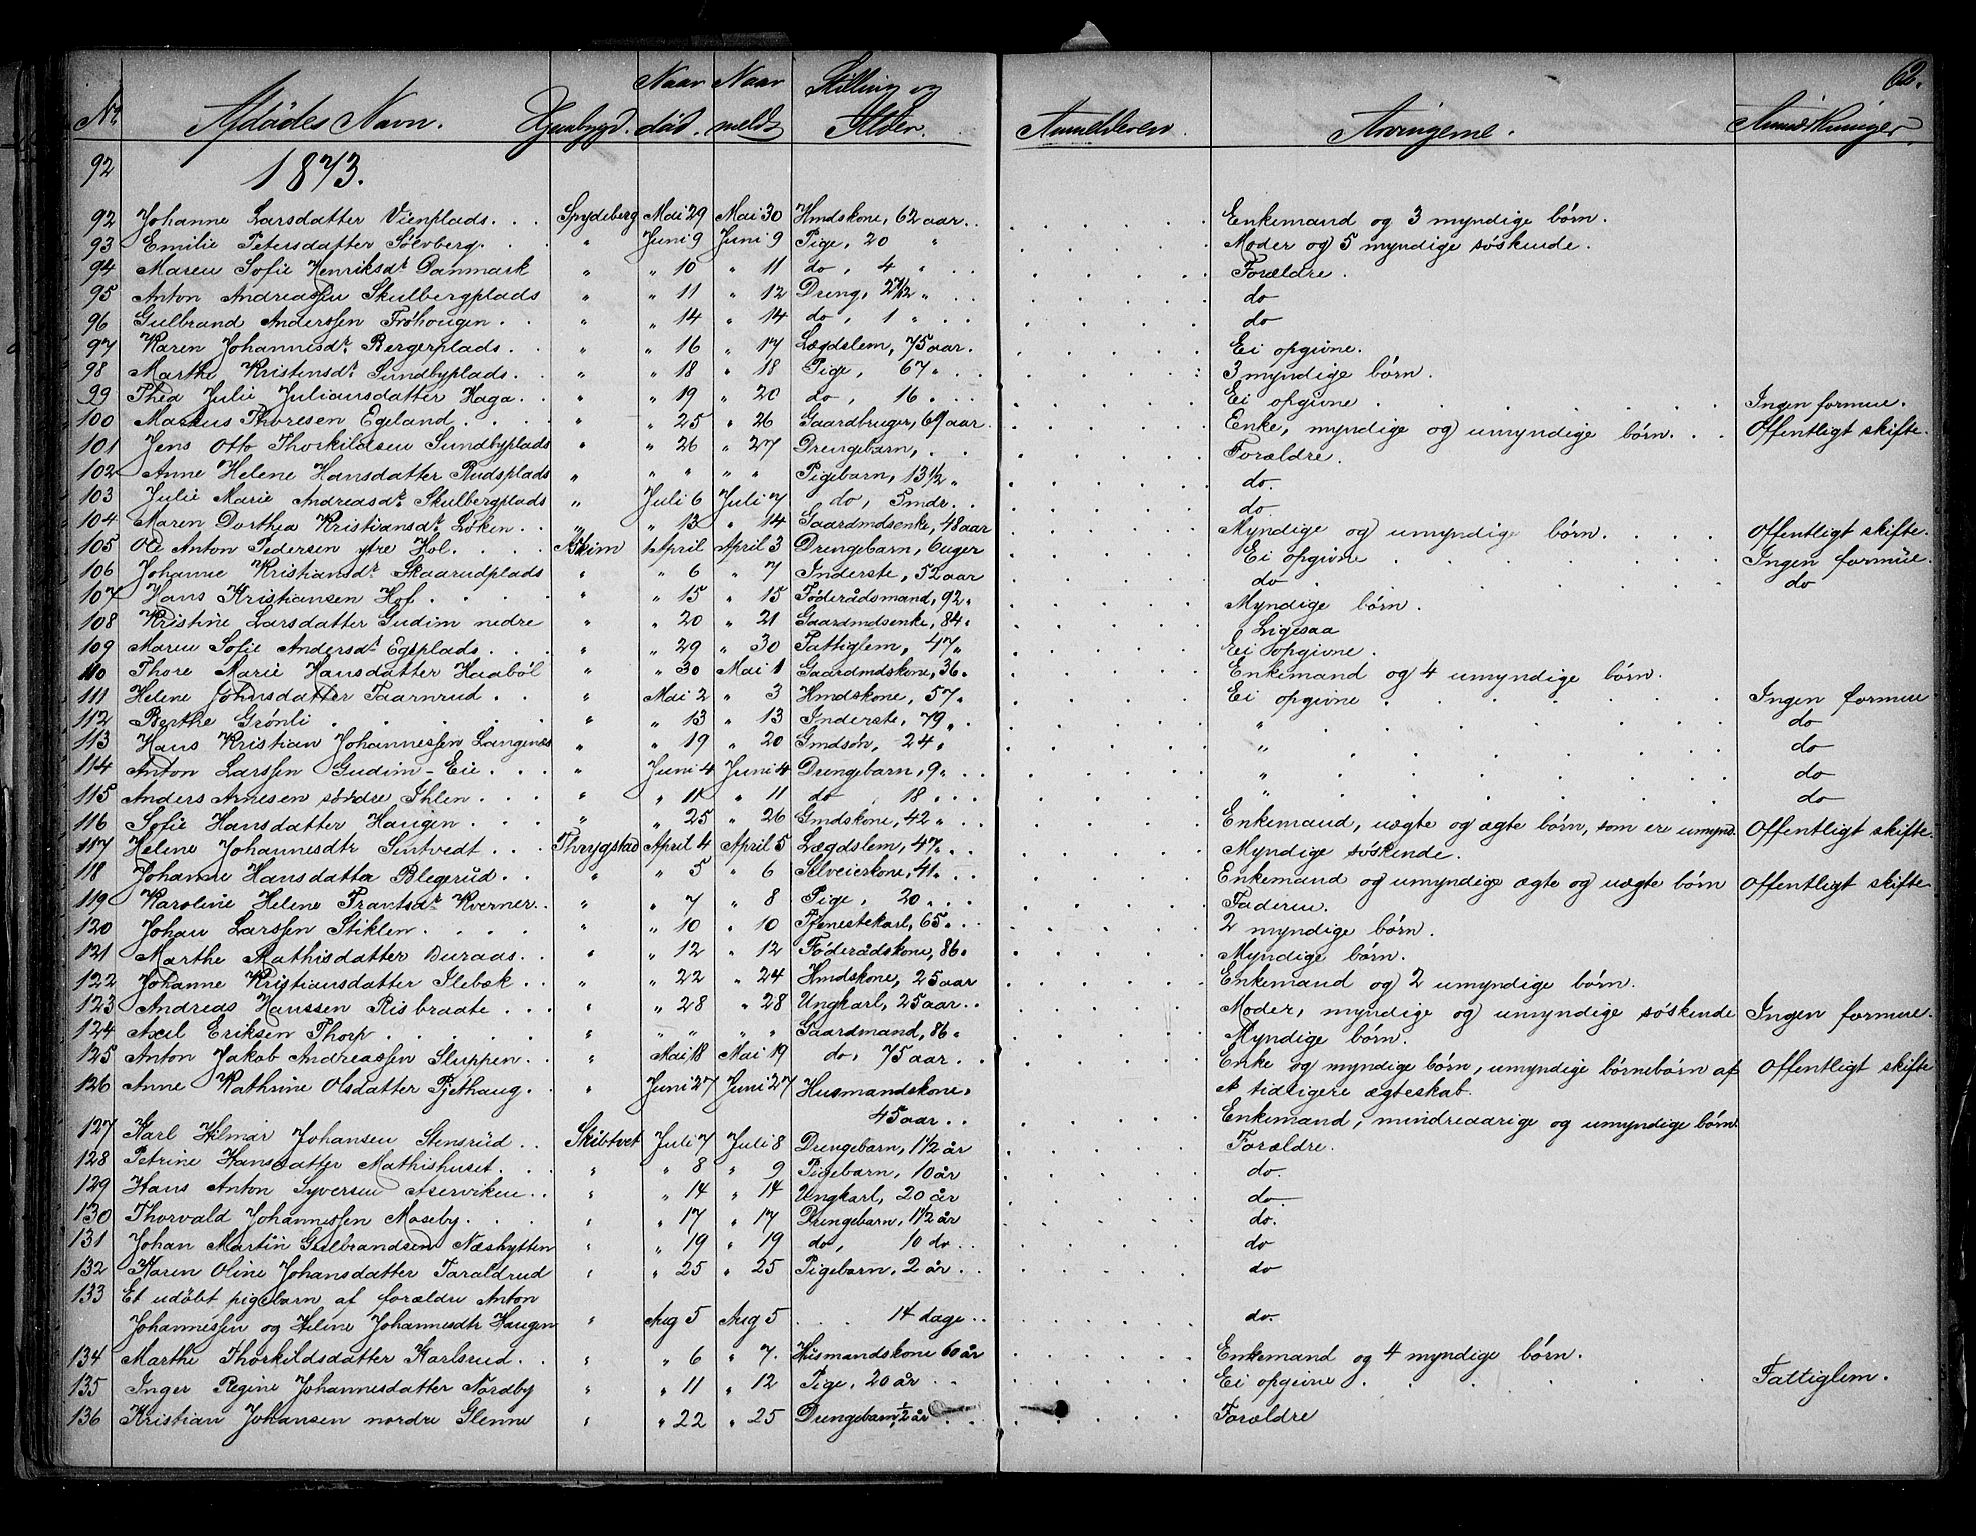 62.
Nr. Afdödes Navn. Hjembygd. Naar död. Naar meldt Stilling og Alder. Anmelderen. Arvingerne. Anmærkninger
92 1873.
92 Johanne Larsdatter Vienplads . . Spydeberg Mai 29 Mai 30 Hmdskone, 62 aar . . Enkemand og 3 myndige børn.
93 Emilie Petersdatter Sölvberg. . . " Juni 9 Juni 9 Pige, 20 " Moder og 5 myndige söskende.
94 Maren Sofie Henriksdr Danmark " " 10 " 11 do, 4 " . . Forældre.
95 Anton Andreassen Skulbergplads " " 11 " 12 Dreng, 2 7/12 " . . do
96 Gulbrand Anderssen Fröhougen . . " " 14 " 14 do, 1 " . . do
97 Karen Johannesdr. Bergerplads . . " " 16 " 17 Lægdslem, 75 aar. Ei opgivne.
98 Marthe Kristensdr. Sundbyplads. . " " 18 " 18 Pige, 67 " . . 3 myndige børn.
99 Thea Julie Juliansdatter Haga . . " " 19 " 20 do, 16 " . . Ei opgivne . . . Ingen formue.
100 Markus Thoresen Egeland . . . " " 25 " 26 Gaardbruger, 69 aar . Enke, myndige og umyndige børn . . Offentligt skifte.
101 Jens Otto Thorkildsen Sundbyplads " " 26 " 27 Drengebarn, . . Forældre.
102 Anne Helene Hansdatter Rudsplads " " " " " Pigebarn, 13 1/2 " do.
103 Julie Marie Andreasdr. Skulbergplads " Juli 6 Juli 7 do, 5 mdr. . do.
104 Maren Dorthea Kristiansdr. Löken . . " " 13 " 14 Gaardmdsenke, 48 aar Myndige og umyndige børn . . . . Offentligt skifte.
105 Ole Anton Pedersen ytre Hol. . . . Askim 1 April April 3 Drengebarn, 6 uger Ei opgivne . . . Ingen formue.
106 Johanne Kristiansdr. Skaarudplads " " 6 " 7 Inderste, 52 aar do . . . do
107 Hans Kristiansen Hof . . . . " " 15 " 15 Föderådsmand, 92 " Myndige børn.
108 Kristine Larsdatter Gudim nedre " " 20 " 21 Gaardmdsenke, 84 " Ligesaa
109 Maren Sofie Andersdr. Egeplads . . . " " 29 " 30 Fattiglem, 47 " Ei opgivne.
110 Thore Marie Hansdatter Haaböl " " 30 Mai 1 Gaardmdskone, 36 " Enkemand og 4 umyndige børn.
111 Helene Johnsdatter Taarnrud . . " Mai 2 " 3 Hmdskone, 57 " Ei opgivne . . . Ingen formue
112 Berthe Grönli . . . . " " 13 " 13 Inderste, 79 " " . . . do
113 Hans Kristian Johannessen Langenæs " " 19 " 20 Gmdsön, 24 " " . . . do
114 Anton Larssen Gudim-Eie . . . " Juni 4 Juni 4 Drengebarn, 9 " . . " . . . do
115 Anders Arnesen söndre Ihlen . . . " " 11 " 11 do, 18 " . . " . . . do
116 Sofie Hansdatter Haugen . . . " " 25 " 26 Gmdskone, 42 " . . Enkemand, uægte og ægte børn, som er umynd. Offentligt skifte.
117 Helene Johannesdtr Sentvedt . . . Thrygstad April 4 April 5 Lægdslem, 47 " . . Myndige söskende.
18 Johanne Hansdatter Blegerud . . " " 5 " 6 Selveierkone, 41 " . . Enkemand og umyndige ægte og uægte børn Offentligt skifte.
119 Karoline Helene Frantsdr. Kverner . . " " 7 " 8 Pige, 20 . . . Faderen.
120 Johan Larssen Stiklen . . . . " " 10 " 10 Tjenestekarl, 65 " . . 2 myndige børn.
121 Marthe Mathisdatter Buraas . . " " 12 " 12 Föderådskone, 86 " Myndige børn.
122 Johanne Kristiansdatter Ilebæk . . " " 22 " 24 Hmdskone, 25 aar Enkemand og 2 umyndige børn.
123 Andreas Hanssen Risbraate . . " " 28 " 28 Ungkarl, 25 aar . . Moder, myndige og umyndige söskende Ingen formue.
124 Axel Eriksen Thorp . . . . . " " " " " Gaardmand, 86 " Myndige børn.
125 Anton Jakob Andreassen Sluppen . . " Mai 18 Mai 19 do, 75 aar . . Enke og myndige børn, umyndige børnebørn af Offentligt skifte
et tidligere ægteskab.
126 Anne Kathrine Olsdatter Pjethaug . . " Juni 27 Juni 27 Husmandskone,
45 aar . . Enkemand, mindreaarige og umyndige børn
127 Karl Hilmar Johansen Stensrud . . Skibtvet Juli 7 Juli 8 Drengebarn, 1 1/2 år Forældre.
128 Petrine Hansdatter Mathishuset . . . " " 8 " 9 Pigebarn, 10 år do.
129 Hans Anton Syversen Aserviken . . " " 14 " 14 Ungkarl, 20 år do
130 Thorvald Johannessen Moseby . . . . " " 17 " 17 Drengebarn, 1 1/2 år do.
131 Johan Martin Gulbrandsen Næshytten " " 19 " 19 do, 10 do . . do
132 Karen Oline Johansdatter Taraldrud " " 25 " 25 Pigebarn, 2 år . . do
133 Et udöbt pigebarn af forældre Anton
Johannessen og Helene Johannesdtr Haugen " Aug 5 Aug 5 . . . 14 dage . . do.
134 Marthe Thorkildsdatter Karlsrud . . " " 6 " 7. Husmandskone 60 år Enkemand og 4 myndige børn.
135 Inger Regine Johannesdatter Nordby " " 11 " 12 Pige, 20 år . . Ei opgivne . . . Fattiglem.
136 Kristian Johansen nordre Glenne " " 22 " 25 Drengebarn, 1/2 år . . Forældre